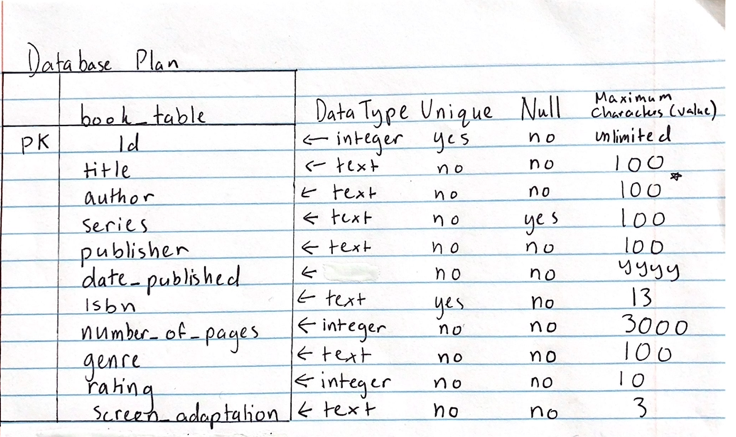 Database Plan
Maximum
book_table Data Type Unique Null Characters (value)
PK Id ← integer yes no unlimited
title ← text no no 100
author ← text no no 100*
series ← text no yes 100
publisher ← text no no 100
date_published ← no no yyyy
Isbn ← text yes no 13
number_of_pages ← integer no no 3000
genre ← text no no 100
rating ← integer no no 10
screen_adaptation ← text no no 3